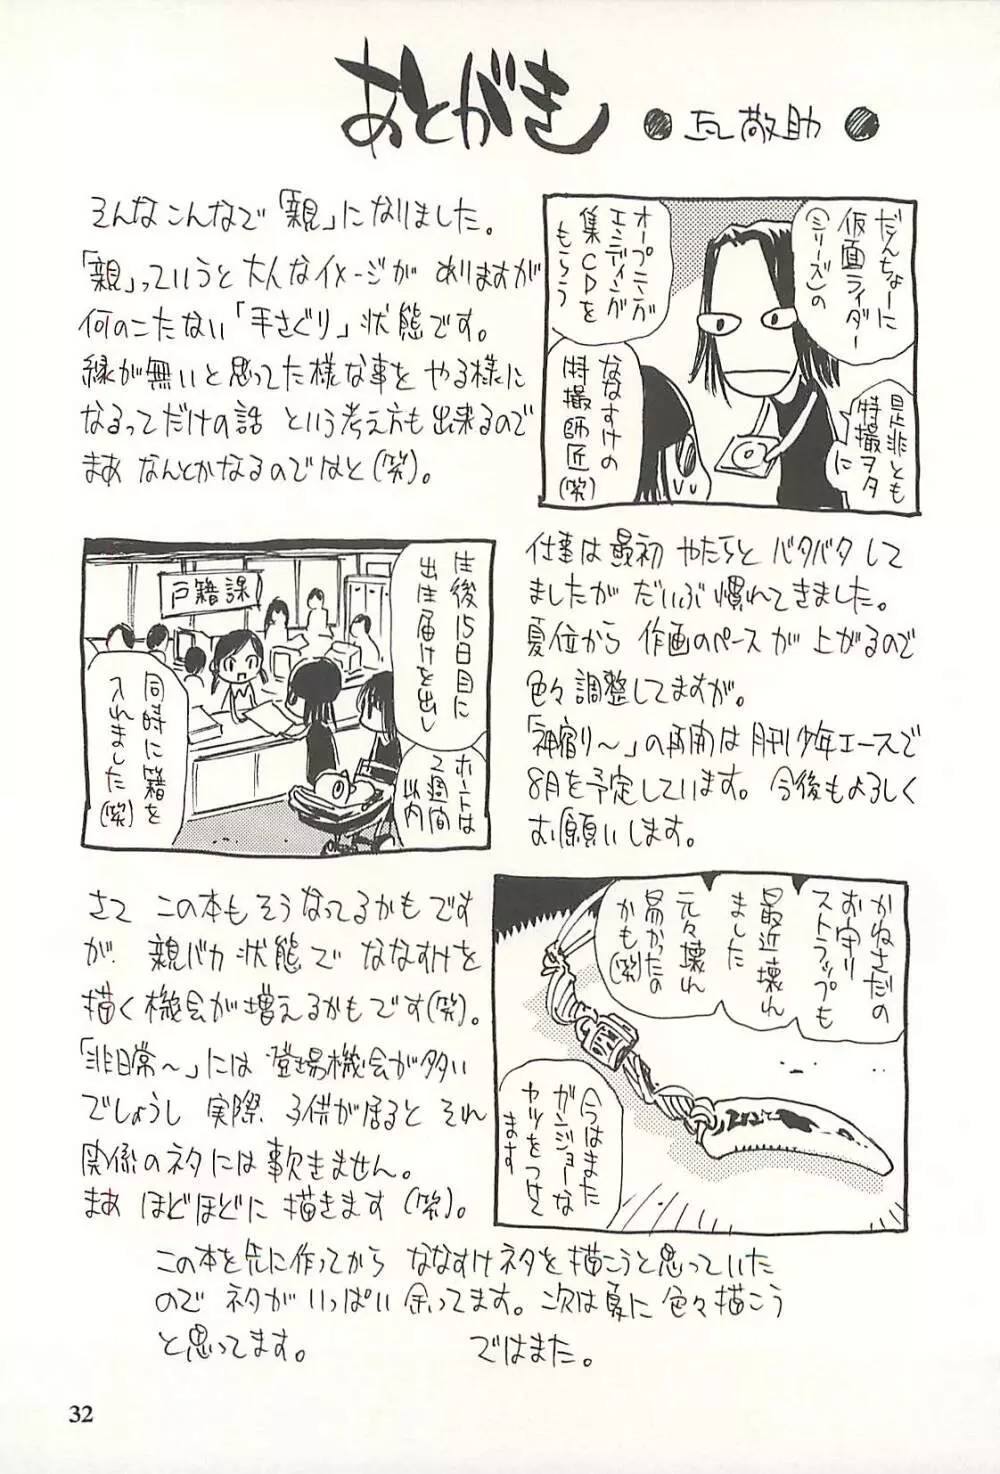 あとがき ●瓦敬助●
そんなこんなで「親」になりました。
「親」っていうと大人なイメージが ありますが
何のこたない「手さぐり」状態です。
縁が無いと思ってた様な事を やる様に
なるってだけの話 という考え方も出来るので
まあ なんとかなるのではと(笑)。
だんちょーに
仮面ライダー
(シリーズ)の
オープニング
エンディング
集CDを
もらう
是非とも
特撮ヲタ
に
ななすけの
特撮師匠
(笑)
戸籍課
生後15日目に
出生届けを出し
ホントは
2週間
以内
同時に籍を
入れました(笑)
仕事は最初 やたらと バタバタして
ましたが だいぶ慣れてきました。
夏位から 作画のペースが 上がるので
色々調整してますが。
「神宿り〜」の再開は 月刊少年エースで
8月を予定しています。今後もよろしく
お願いします。
さて この本もそうなってるかもです
が、親バカ状態で ななすけを
描く機会が増えるかもです(笑)。
「非日常〜」には 登場機会が多い
でしょうし 実際 子供が居ると それ
関係のネタには事欠きません。
まあ ほどほどに 描きます(笑)。
かねさだの
お守り
ストラップも
最近壊れ
ました
元々壊れ
易かったの
かも(笑)
今はまた
ガンジョーな
ヤツをつけて
ます
この本を先に作ってから ななすけネタを描こうと思っていた
ので ネタが いっぱい 余ってます。次は夏に色々描こう
と思ってます。 ではまた。
32